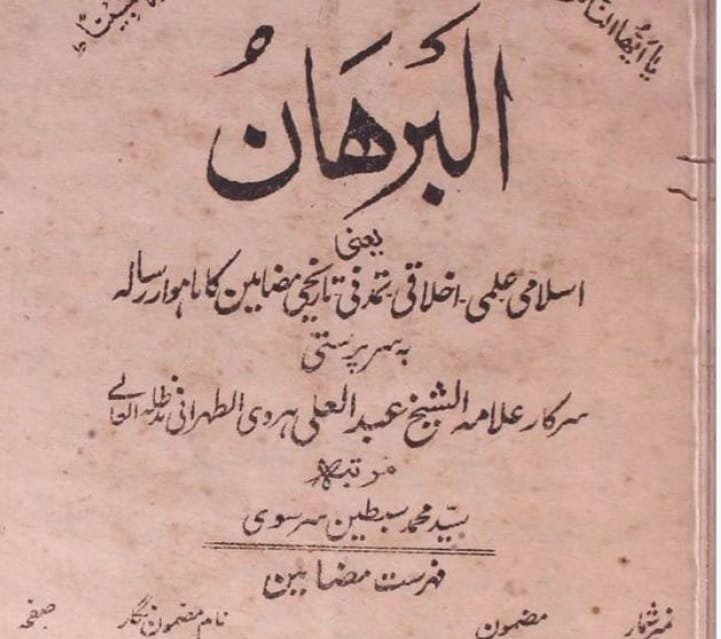 یا ایھا الناس
البَرھَانُ
یعنی
اسلامی علمی۔ اخلاقی۔ تمدنی تاریخی مضامین کا ماہوار رسالہ
بہ سرپرستی
سرکار علامہ الشیخ عبد العلی ہروی الطہرانی مدظلہ العالے
مرتبہ
سیّد محمد سبطین سرسوی
فہرست مضامین
نمبرشمار مضمون نام مضمون نگار صفحہ